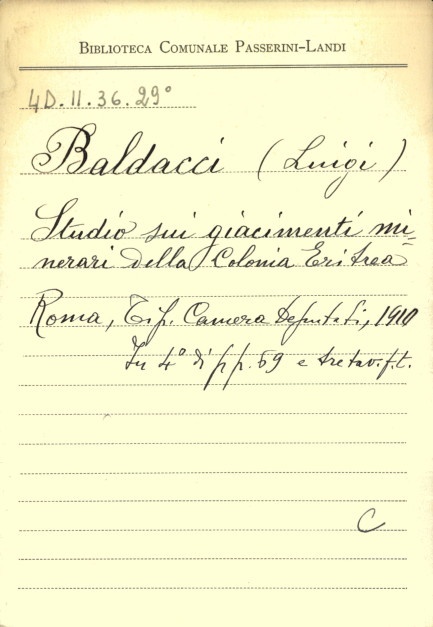 BIBLIOTECA COMUNALE PASSERINI-LANDI
4D.II.36.29°
Baldacci (Luigi)
Studio sui giacimenti mi=
nerari della Colonia Eritrea
Roma, Tip. Camera Deputati, 1910
In 4° di pp. 69 e tre tav. f.t.
C